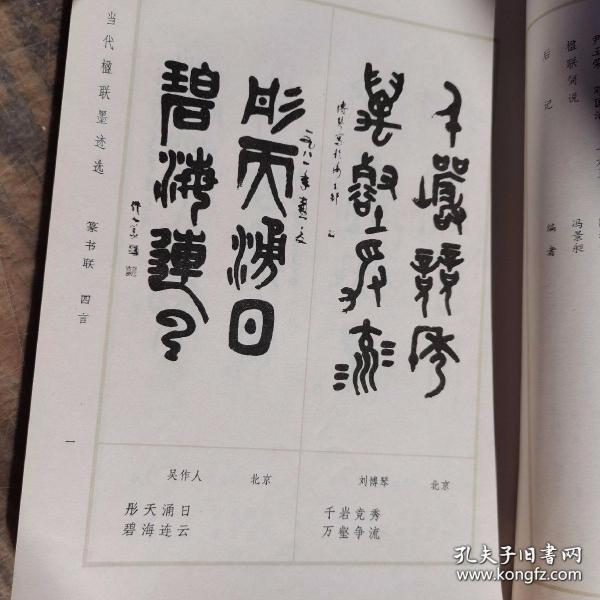 当代楹联墨迹选
篆书联 四言
一
千岩竞秀
万壑争流
彤天涌日
碧海连云
一九八一年
吴作人 北京
彤天涌日
碧海连云
刘博琴 北京
千岩竞秀
万壑争流
楹联简说
后记
冯景昶
编者
孔夫子旧书网
www.kongfz.com